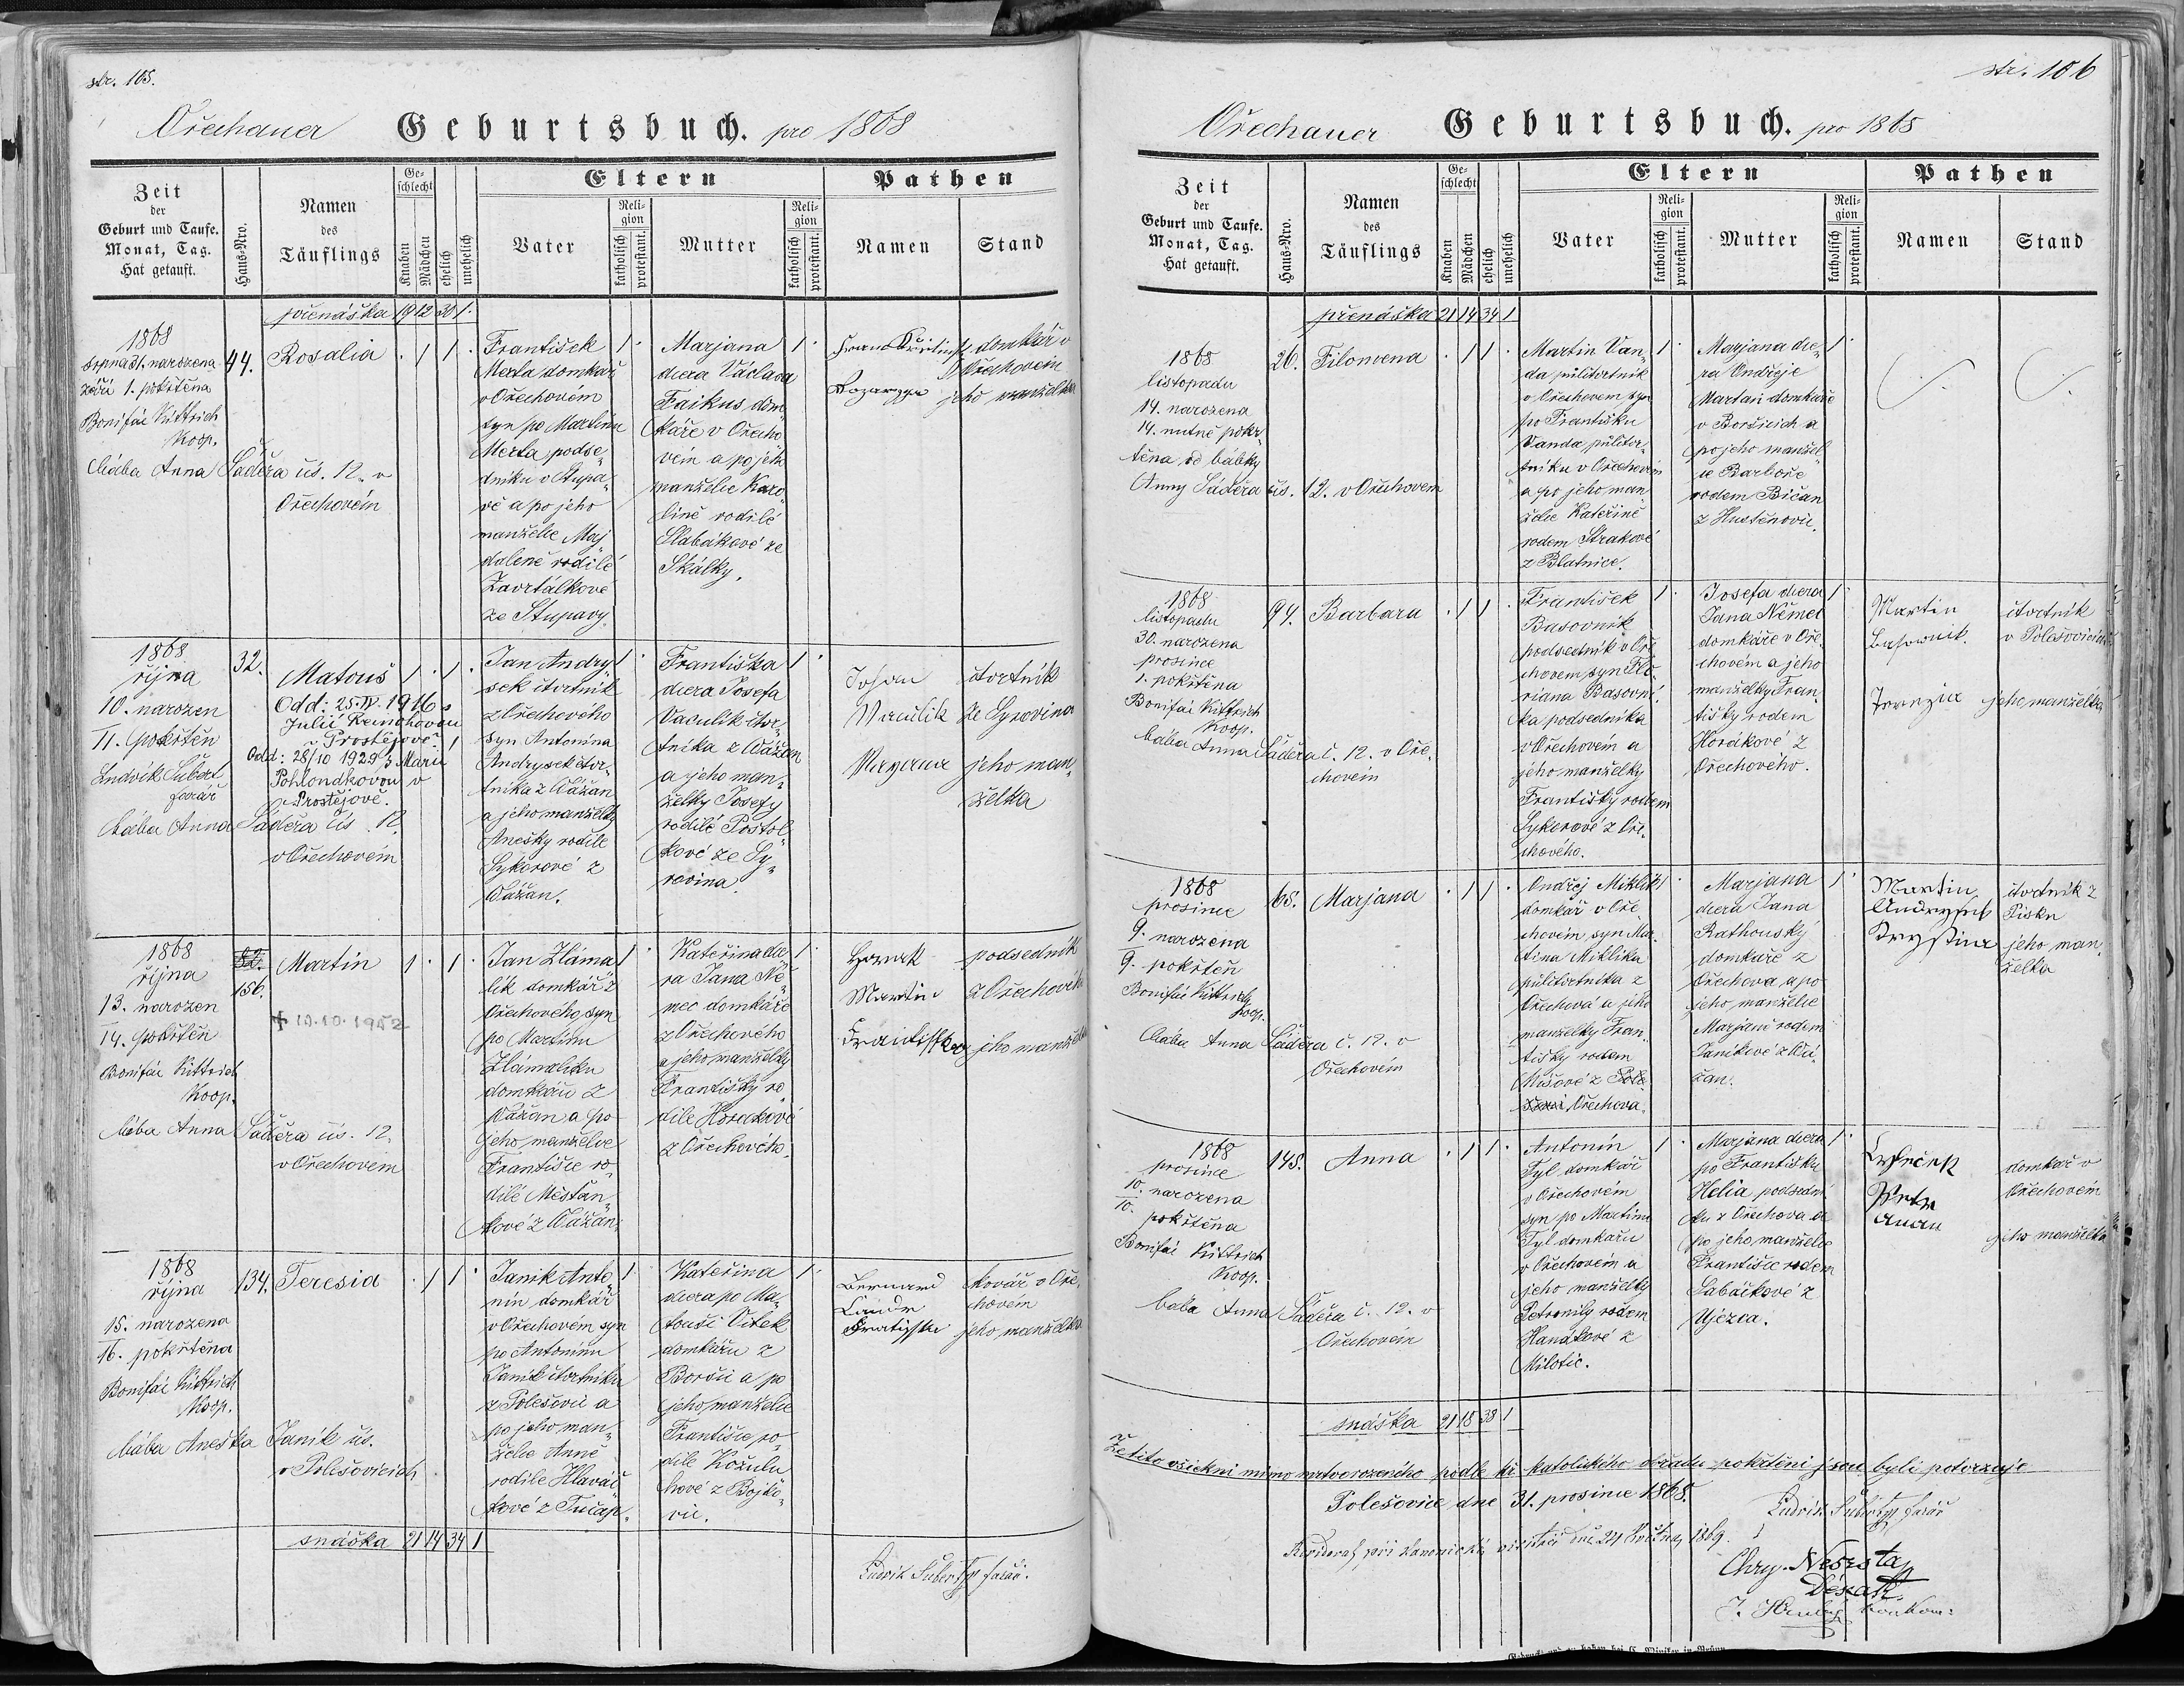 str. 105.
Ořechauer Geburtsbuch. pro 1868
Zeit
der
Geburt und Taufe.
Monat, Tag.
Hat getauft.
Haus-Nro.
Namen
des
Täuflings
Ge-
schlecht
Knaben
Mädchen
ehelich
unehelich
Eltern
Vater
Reli-
gion
katholisch
protestant.
Mutter
Reli-
gion
katholisch
protestant.
Pathen
Namen
Stand
přenáška 19 12 30 1.
1868
srpna 31. narozena
září 1. pokřtěna
Bonifác Kittrich
Koop.
bába Anna Šáděra čís. 12. v
Ořechovém
44.
Rosalia
. 1 1 .
František
Merla domkář
v Ořechovém
syn po Martinu
Merla podse-
dníku v Stupa-
vě a po jeho
manželce Maj-
daleně rodilé
Zavrtálkové
ze Stupavy.
1 .
Marjana
dcera Václava
Faikus dom-
káře v Ořecho-
vém a po jeho
manželce Karo-
lině rodilé
Slabákové ze
Skálky.
1 .
domkář v
Ořechovém
jeho manželka
1868
října
10. narozen
11. pokřtěn
Ludvík Šubert
farář
bába Anna Šáděra čís. 12.
v Ořechovém
32.
Matouš
Odd: 25.IV. 1916 s
Julií
Prostějově.
Odd: 28/10 1929 s Marií
v
Prostějově.
1 . 1 .
Jan Andry-
sek čtvrtník
z Ořechového
syn Antonína
Andrysek čtvr-
tníka z Vážan
a jeho manželky
Anešky rodilé
Sykorové z
Vážan.
1 .
Františka
dcera Josefa
Vaculík čtvr-
tníka z Vážan
a jeho man-
želky Josefy
rodilé Postol-
kové ze Sy-
rovina.
1 .
Johan
Vaculik
Maryana
čtvrtník
ze Syrovina
jeho man-
želka
1868
října
13. narozen
14. pokřtěn
Bonifác Kittrich
Koop.
bába Anna Šáděra čís. 12.
v Ořechovém
156.
Martin
1 . 1 .
Jan Zláma-
lík domkář z
Ořechového, syn
po Martinu
Zlámalíku
domkáři z
Vážan a po
jeho manželce
Františce ro-
dilé Měšťán-
kové z Vážan.
1 .
Kateřina dce-
ra Jana Ně-
mec domkáře
z Ořechového
a jeho manželky
Františky ro-
dilé Horákové
z Ořechového.
1 .
Horak
Martin
podsedník
z Ořechového
jeho manželka
1868
října
15. narozena
16. pokřtěna
Bonifác Kittrich
Koop.
bába Aneška Janík čís.
v Polešovicích
134.
Teresia
. 1 1 .
Janík Anto-
nín domkář
v Ořechovém syn
po Antonínu
Janík čtvrtníku
z Polešovic a
po jeho man-
želce Anně
rodilé Hlaváč-
kové z Tučap.
1 .
Kateřina
dcera po Ma-
touši Vítek
domkáři z
Boršic a po
jeho manželce
Františce ro-
dilé Kožulu-
hové z Bojko-
vic.
1 .
Bernard
kovář v Oře-
chovém
jeho manželka
snáška 21 14 34 1
Ludvík Šubert farář.
str. 106
Ořechauer Geburtsbuch. pro 1868
Zeit
der
Geburt und Taufe.
Monat, Tag.
Hat getauft.
Haus-Nro.
Namen
des
Täuflings
Ge-
schlecht
Knaben
Mädchen
ehelich
unehelich
Eltern
Vater
Reli-
gion
katholisch
protestant.
Mutter
Reli-
gion
katholisch
protestant.
Pathen
Namen
Stand
přenáška 21 14 34 1
1868
listopadu
14. narozena
14. nutně pokř-
těna od bábky
Anny Šáděra čís. 12. v Ořechovem
26.
Filomena
. 1 1 .
Martin Van-
da půlčtvrtník
v Ořechovem syn
po Františku
Vanda půlčtvr-
tníku v Ořechovém
a po jeho man-
želce Kateřině
rodem Strakové
z Blatnice.
1 .
Marjana dce-
ra Ondřeje
Martaň domkáře
v Boršicích a
po jeho manžel-
ce Barboře
rodem Bičan
z Huštěnovic.
1 .
1868
listopadu
30. narozena
prosince
1. pokřtěna
Bonifác Kittrich
Koop.
bába Anna Šáděra č. 12. v Oře-
chovém
94.
Barbara
. 1 1 .
František
Basovník
podsedník v Oře-
chovem, syn Flo-
riana Basovní-
ka podsedníka
v Ořechovém a
jeho manželky
Františky rodem
Sykorové z Oře-
chového.
1 .
Josefa dcera
Jana Němec
domkáře v Oře-
chovém a jeho
manželky Fran-
tišky rodem
Horákové z
Ořechového.
1 .
Martin
Basownik
Terezia
čtvrtník
v Polešovicích
jeho manželka
1868
prosince
9. narozena
9. pokřtěn
Bonifác Kittrich
Koop.
bába Anna Šáděra č. 12. v
Ořechovém
65.
Marjana
. 1 1 .
Ondřej Miklík
domkář v Oře-
chovém, syn Mar-
tina Miklíka
půlčtvrtníka z
Ořechova a jeho
manželky Fran-
tišky rodem
Mišové z
Ořechova.
1 .
Marjana
dcera Jana
Rathouský
domkáře z
Ořechova a po
jeho manželce
Marjaně rodem
Janíkové z Vá-
žan.
1 .
Martin
Andrysek
Krystina
čtvrtník z
Písku
jeho man-
želka
1868
prosince
10. narozena
10.
pokřtěna
Bonifác Kittrich
Koop.
bába Anna Šáděra č. 12. v
Ořechovém
148.
Anna
. 1 1 .
Antonín
Tyl domkář
v Ořechovém
syn po Martinu
Tyl domkáři
v Ořechovém a
jeho manželky
Petronily rodem
Hanákové z
Milotic.
1 .
Marjana dcera
po Františku
Helia podsední-
ku z Ořechova a
po jeho manželce
Františce rodem
Sabáčkové z
Újezca.
1 .
domkář v
Ořechovém
jeho manželka
snáška 21 18 38 1
Že tito všickni mimo mrtvorozeného podle kř. katolického obřadu pokřtěni jsou byli potvrzuje
Polešovice dne 31. prosince 1868.
Ludvík Šubert farář
při kanonické visitaci dne 24 Května 1869.
Chry. Nesrsta
Děkan